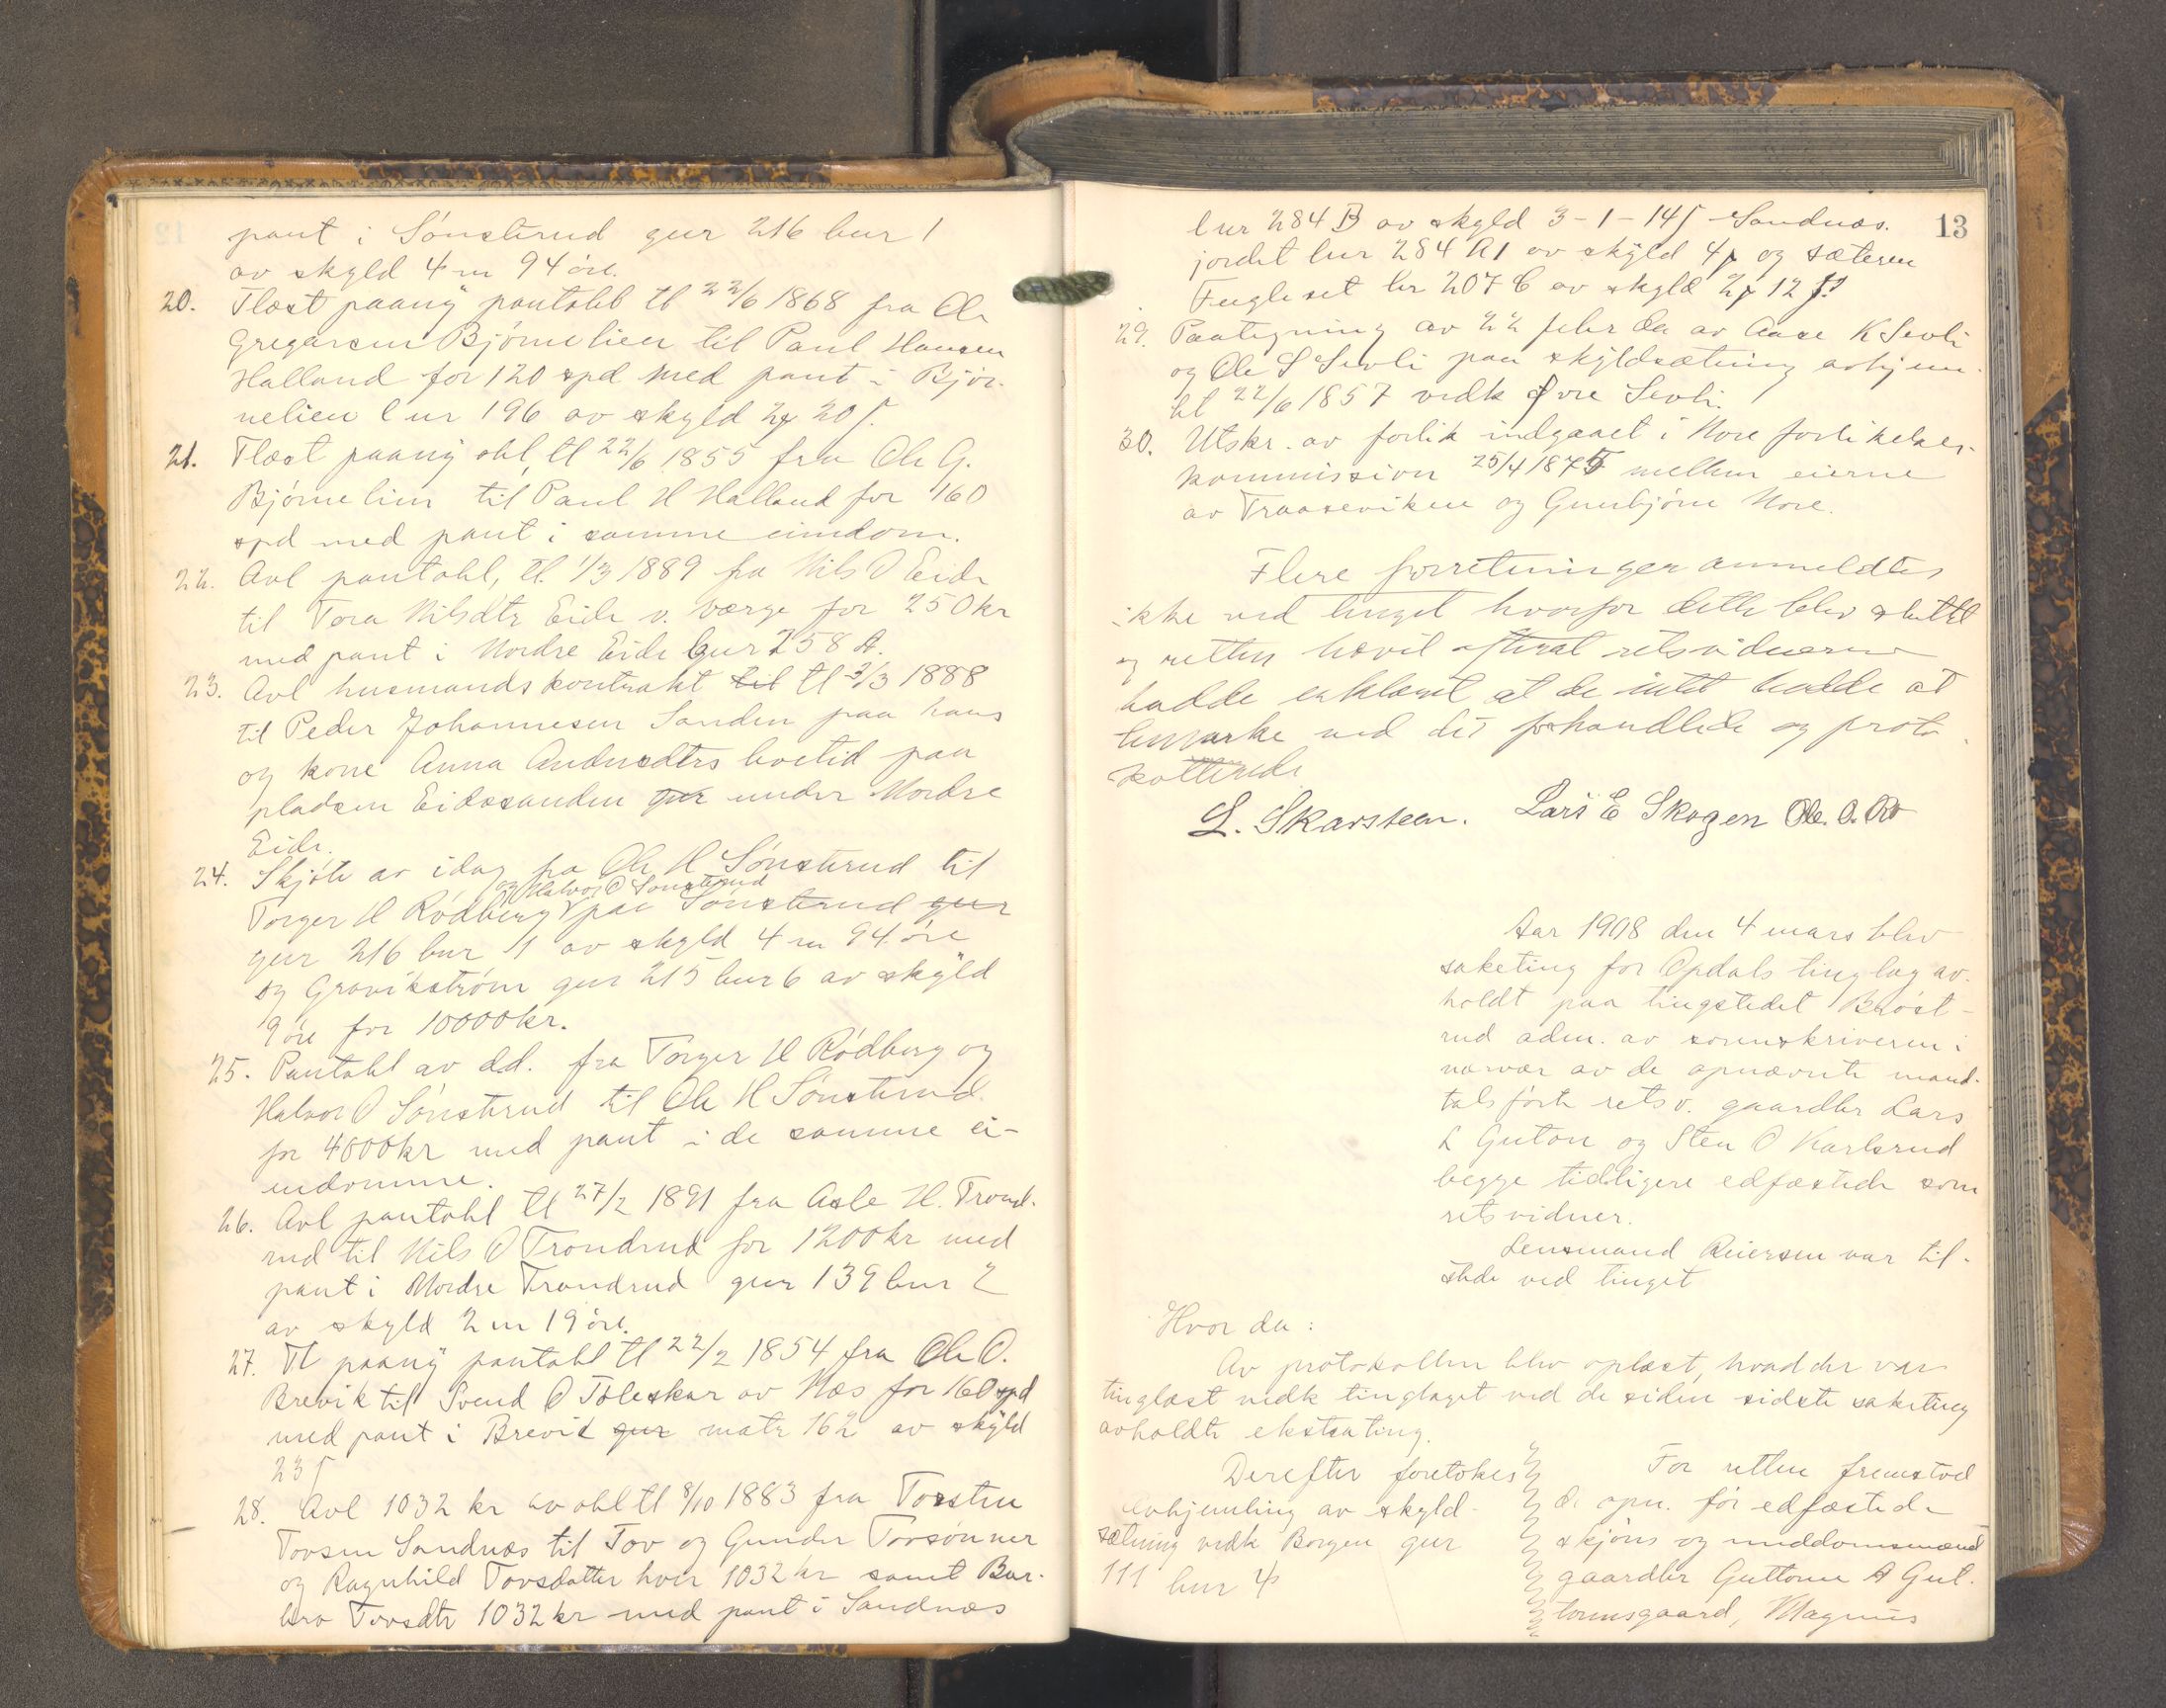 pant i Sönsterud gnr 216 bnr 1
av skyld 4 m 94 öre.
20. Tlæst paany pantobl tl 22/6 1868 fra Ole
Gregersen Bjørnelien til Paul Hansen
Halland for 120 spd med pant i Bjør-
nelien lnr 196 av skyld 2 20 ſ.
21. Tlæst paany obl, tl 22/6 1855 fra Ole G.
Bjørnelien til Paul H Halland for 160
spd med pant i samme eiendom.
22. Avl pantobl, tl. 1/3 1889 fra Nils O Eide
til Tora Nilsdtr Eide v. værge for 250 kr
med pant i Nordre Eide lnr 258 A.
23. Avl husmandskontrakt til tl 2/3 1888
til Peder Johannesen Sanden paa hans
og kone Anna Andersdtrs levetid paa
pladsen Eidssanden gnr under Nordre
Eide.
24. Skjöte av idag fra Ole H Sönsterud til
og Halvor O Sönsterud
Torger H Rödberg paa Sönsterud gnr
gnr 216 bnr 1 av skyld 4 m 94 öre
og Gravikström gnr 215 bnr 6 av skyld
9 öre for 10000 kr.
25. Pantobl av d.d. fra Torger H Rödberg og
Halvor O Sönsterud til Ole H Sönsterud
for 4000 kr med pant i de samme ei-
endomme.
26. Avl pantobl tl 27/2 1891 fra Asle H. Trond-
rud til Nils O Trondrud for 1200 kr med
pant i Nordre Trondrud gnr 139 bnr 2
av skyld 2 m 19 öre.
27. Tl paany pantobl tl 22/2 1854 fra Ole O.
Brevik til Svend O Toleskar av Næs for 160 spd
med pant i Brevik gnr matr 162 av skyld
23 ſ
28. Avl 1032 kr av obl tl 8/10 1883 fra Torsten
Tovsen Sandnæs til Tov og Gunder Tovsönner
og Ragnhild Tovsdatter hver 1032 kr samt Bar-
bro Tovsdtr 1032 kr med pant i Sandnæs
13
lnr 284 B av skyld 3 - 1 - 14 ſ Sandnæs-
jordet lnr 284 A1 av skyld 4 og sæteren
Fugleset lnr 207 C av skyld 2 12 ſ!
29. Paategning av 22 febr da av Aase K Sevli
og Ole S Sevli paa skyldsætning avhjem-
let 22/6 1857 vedk Øvre Sevli.
30. Utskr. av forlik indgaaet i Nore forlikelses-
kommission 25/4 1875 mellem eierne
av Traaseviken og Gunbjørn Nore.
Flere forretninger anmeldtes
ikke ved tinget hvorfor dette blev sluttet
og retten hævet efterat retsvidnerne
hadde erklæret at de intet hadde at
bemærke ved det forhandlede og proto-
kollerede
L. Skarsteen. Lars E Skogen Ole. O. Ro
Aar 1908 den 4 mars blev
saketing for Opdals tinglag av-
holdt paa tingstedet Bröst-
rud adm. av sorenskriveren i
nærvær av de opnævnte mand-
talsförte retsv. gaardbr Lars
L Guton og Sten O Karlsrud
begge tidligere edfæstede som
retsvidner.
Lensmand Reiersen var til-
stede ved tinget
Hvor da:
Av protokollen blev oplæst, hvad der var
tinglæst vedk tinglaget ved de siden sidste saketing
avholdte ekstrating.
Derefter foretokes
avhjemling av skyld-
sætning vedk Borgen gnr
111 bnr 4
For retten fremstod
de opn. för edfæstede
skjöns og meddomsmænd
gaardbr Guttorm A Gut-
tormsgaard, Magnus